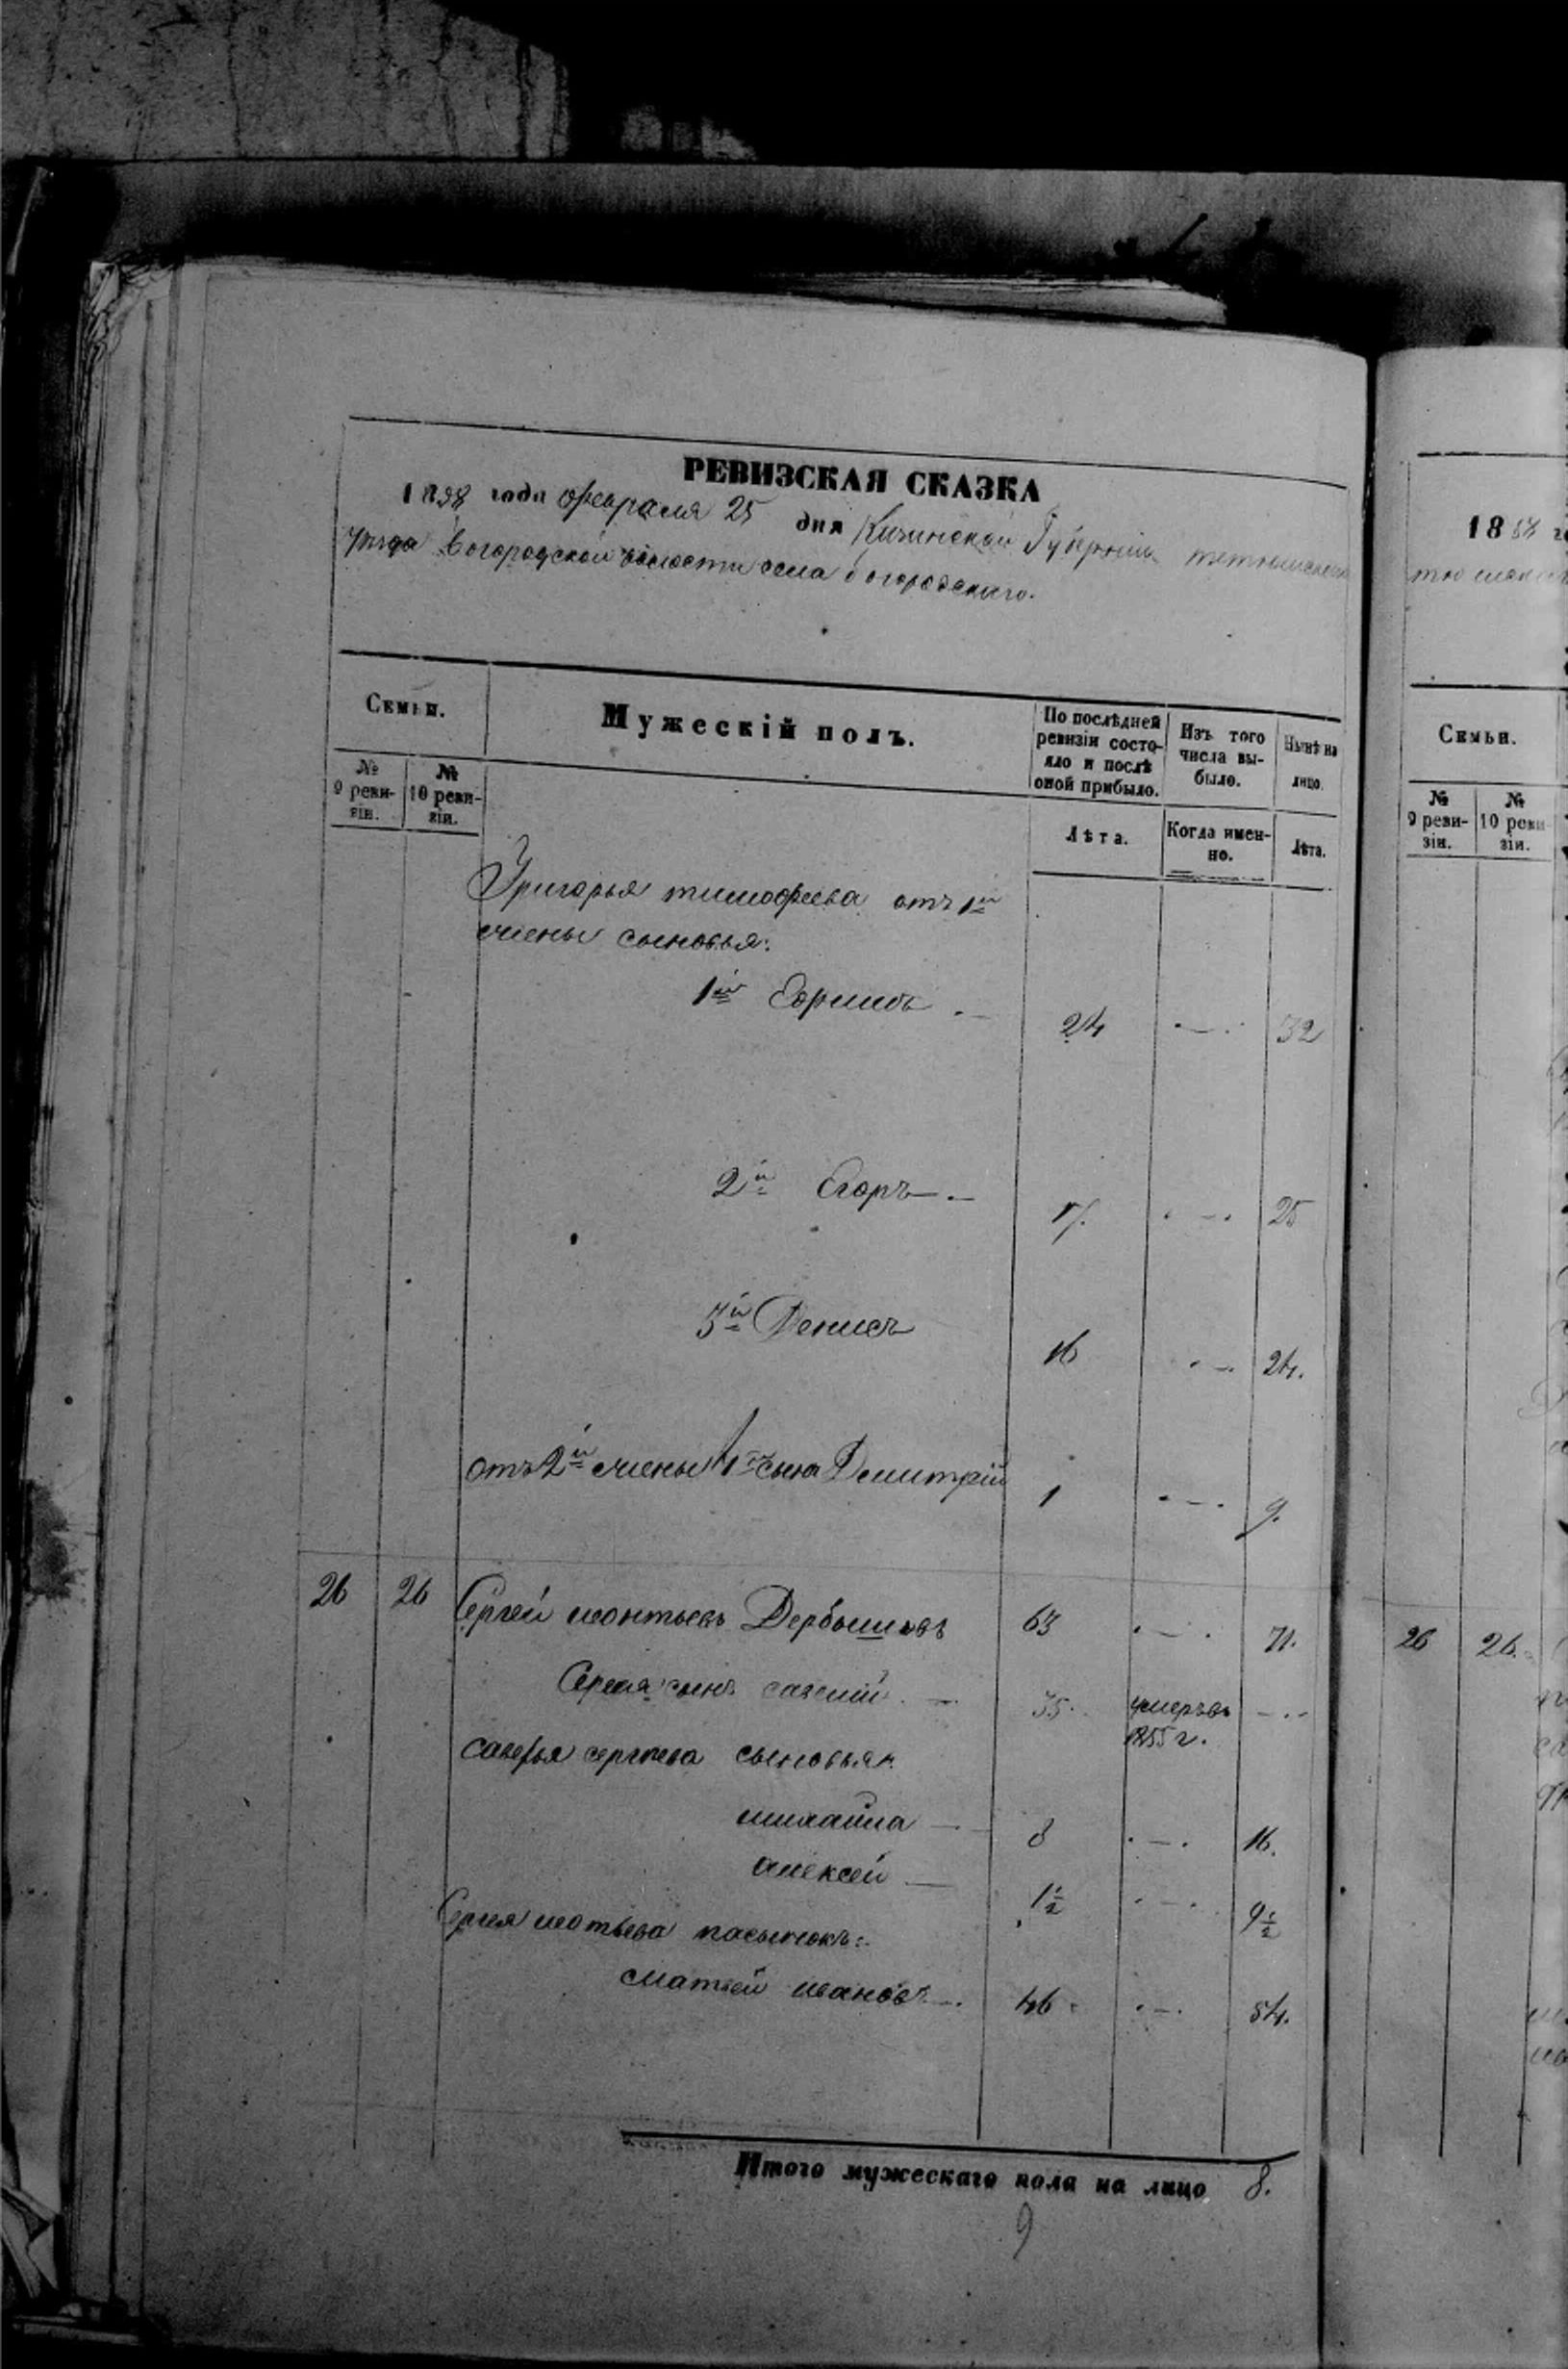 РЕВИЗСКАЯ СКАЗКА
1858 года февраля 25 дня Казанской Губернии тетюшскаго
уезда Богородской волости села богородскаго.
Семьи.
Мужескій полъ.
По послѣдней ревизіи состояло и послѣ оной прибыло.
Изъ того числа выбыло.
Нынѣ на лицо.
№ 9 ревизіи.
№ 10 ревизіи.
Лѣта.
Когда именно.
Лѣта.
Григорья тимофеева отъ 1й
жены сыновья:
1й Ефимъ 24 32
2й Егоръ 17. 25
3й Денисъ 16 24.
отъ 2й жены 1й сынъ Демитрій 1 9.
26 26 Сергей леонтьевъ Дербышевъ 63 71.
Сергея сынъ савелий 35 умеръ въ
1855 г.
савелья сергеева сыновья
михайла 8 16.
алексей 1½ 9½
Сергея леотьева пасынокъ:
матвей ивановъ 46 54.
Итого мужескаго пола на лицо 8.
9
1858
Семьи.
№ 9 ревизіи.
№ 10 ревизіи.
26 26.